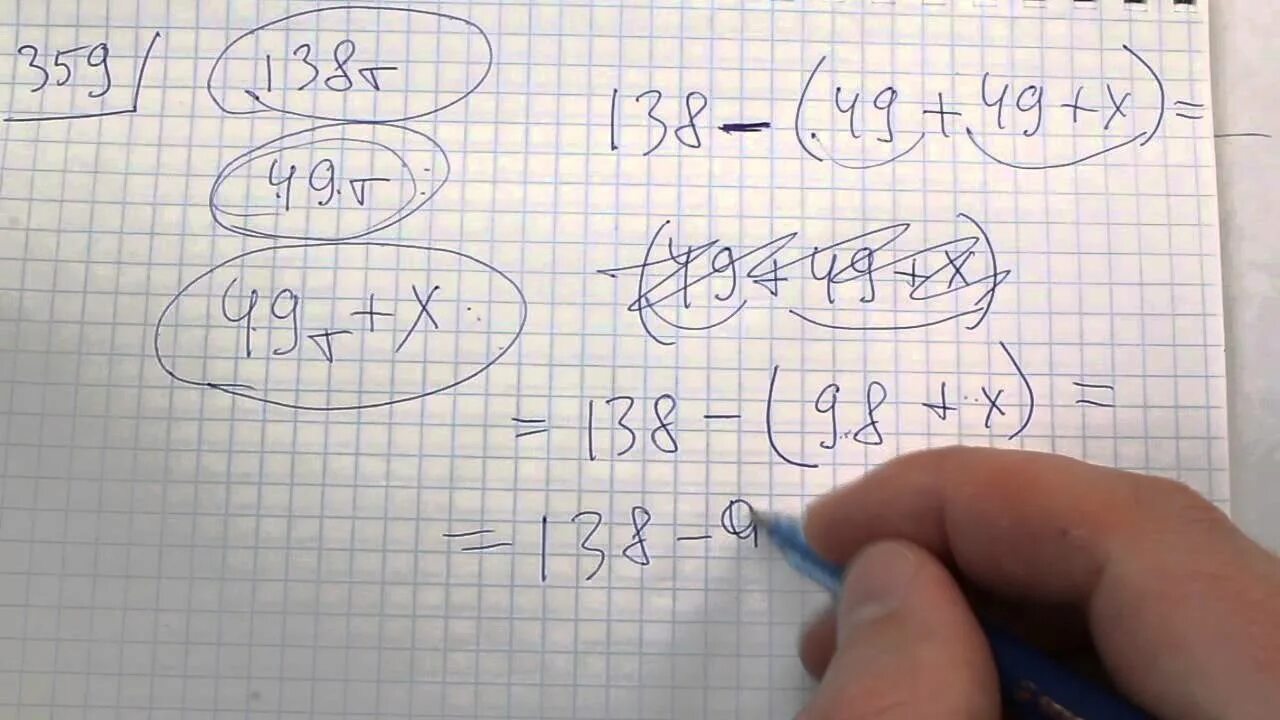 359
138т
49т
49т + x
138 - (49 + 49 + x) =
(49 + 49 + x)
= 138 - (98 + x) =
= 138 - 9